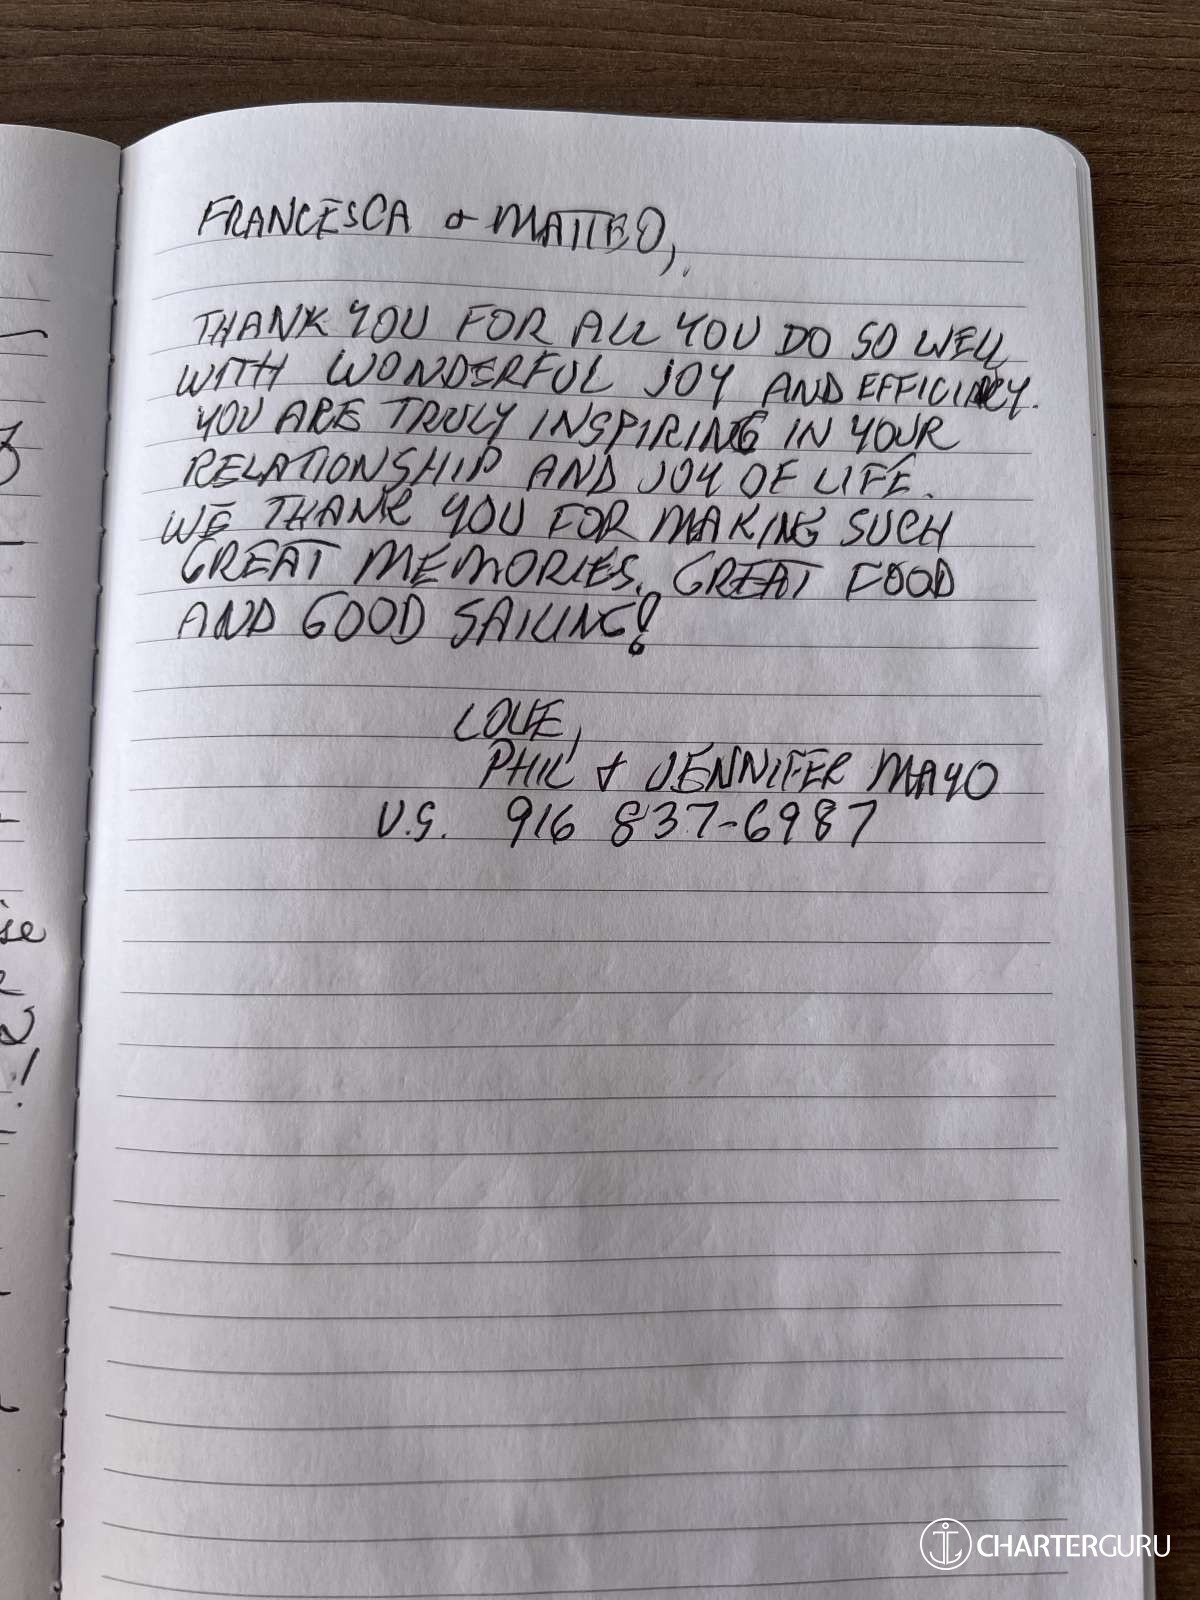 FRANCESCA & MATTEO,
THANK YOU FOR ALL YOU DO SO WELL
WITH WONDERFUL JOY AND EFFICIENCY.
YOU ARE TRULY INSPIRING IN YOUR
RELATIONSHIP AND JOY OF LIFE.
WE THANK YOU FOR MAKING SUCH
GREAT MEMORIES. GREAT FOOD
AND GOOD SAILING!
LOVE,
PHIL & JENNIFER MAYO
U.S. 916 837-6987
CHARTERGURU